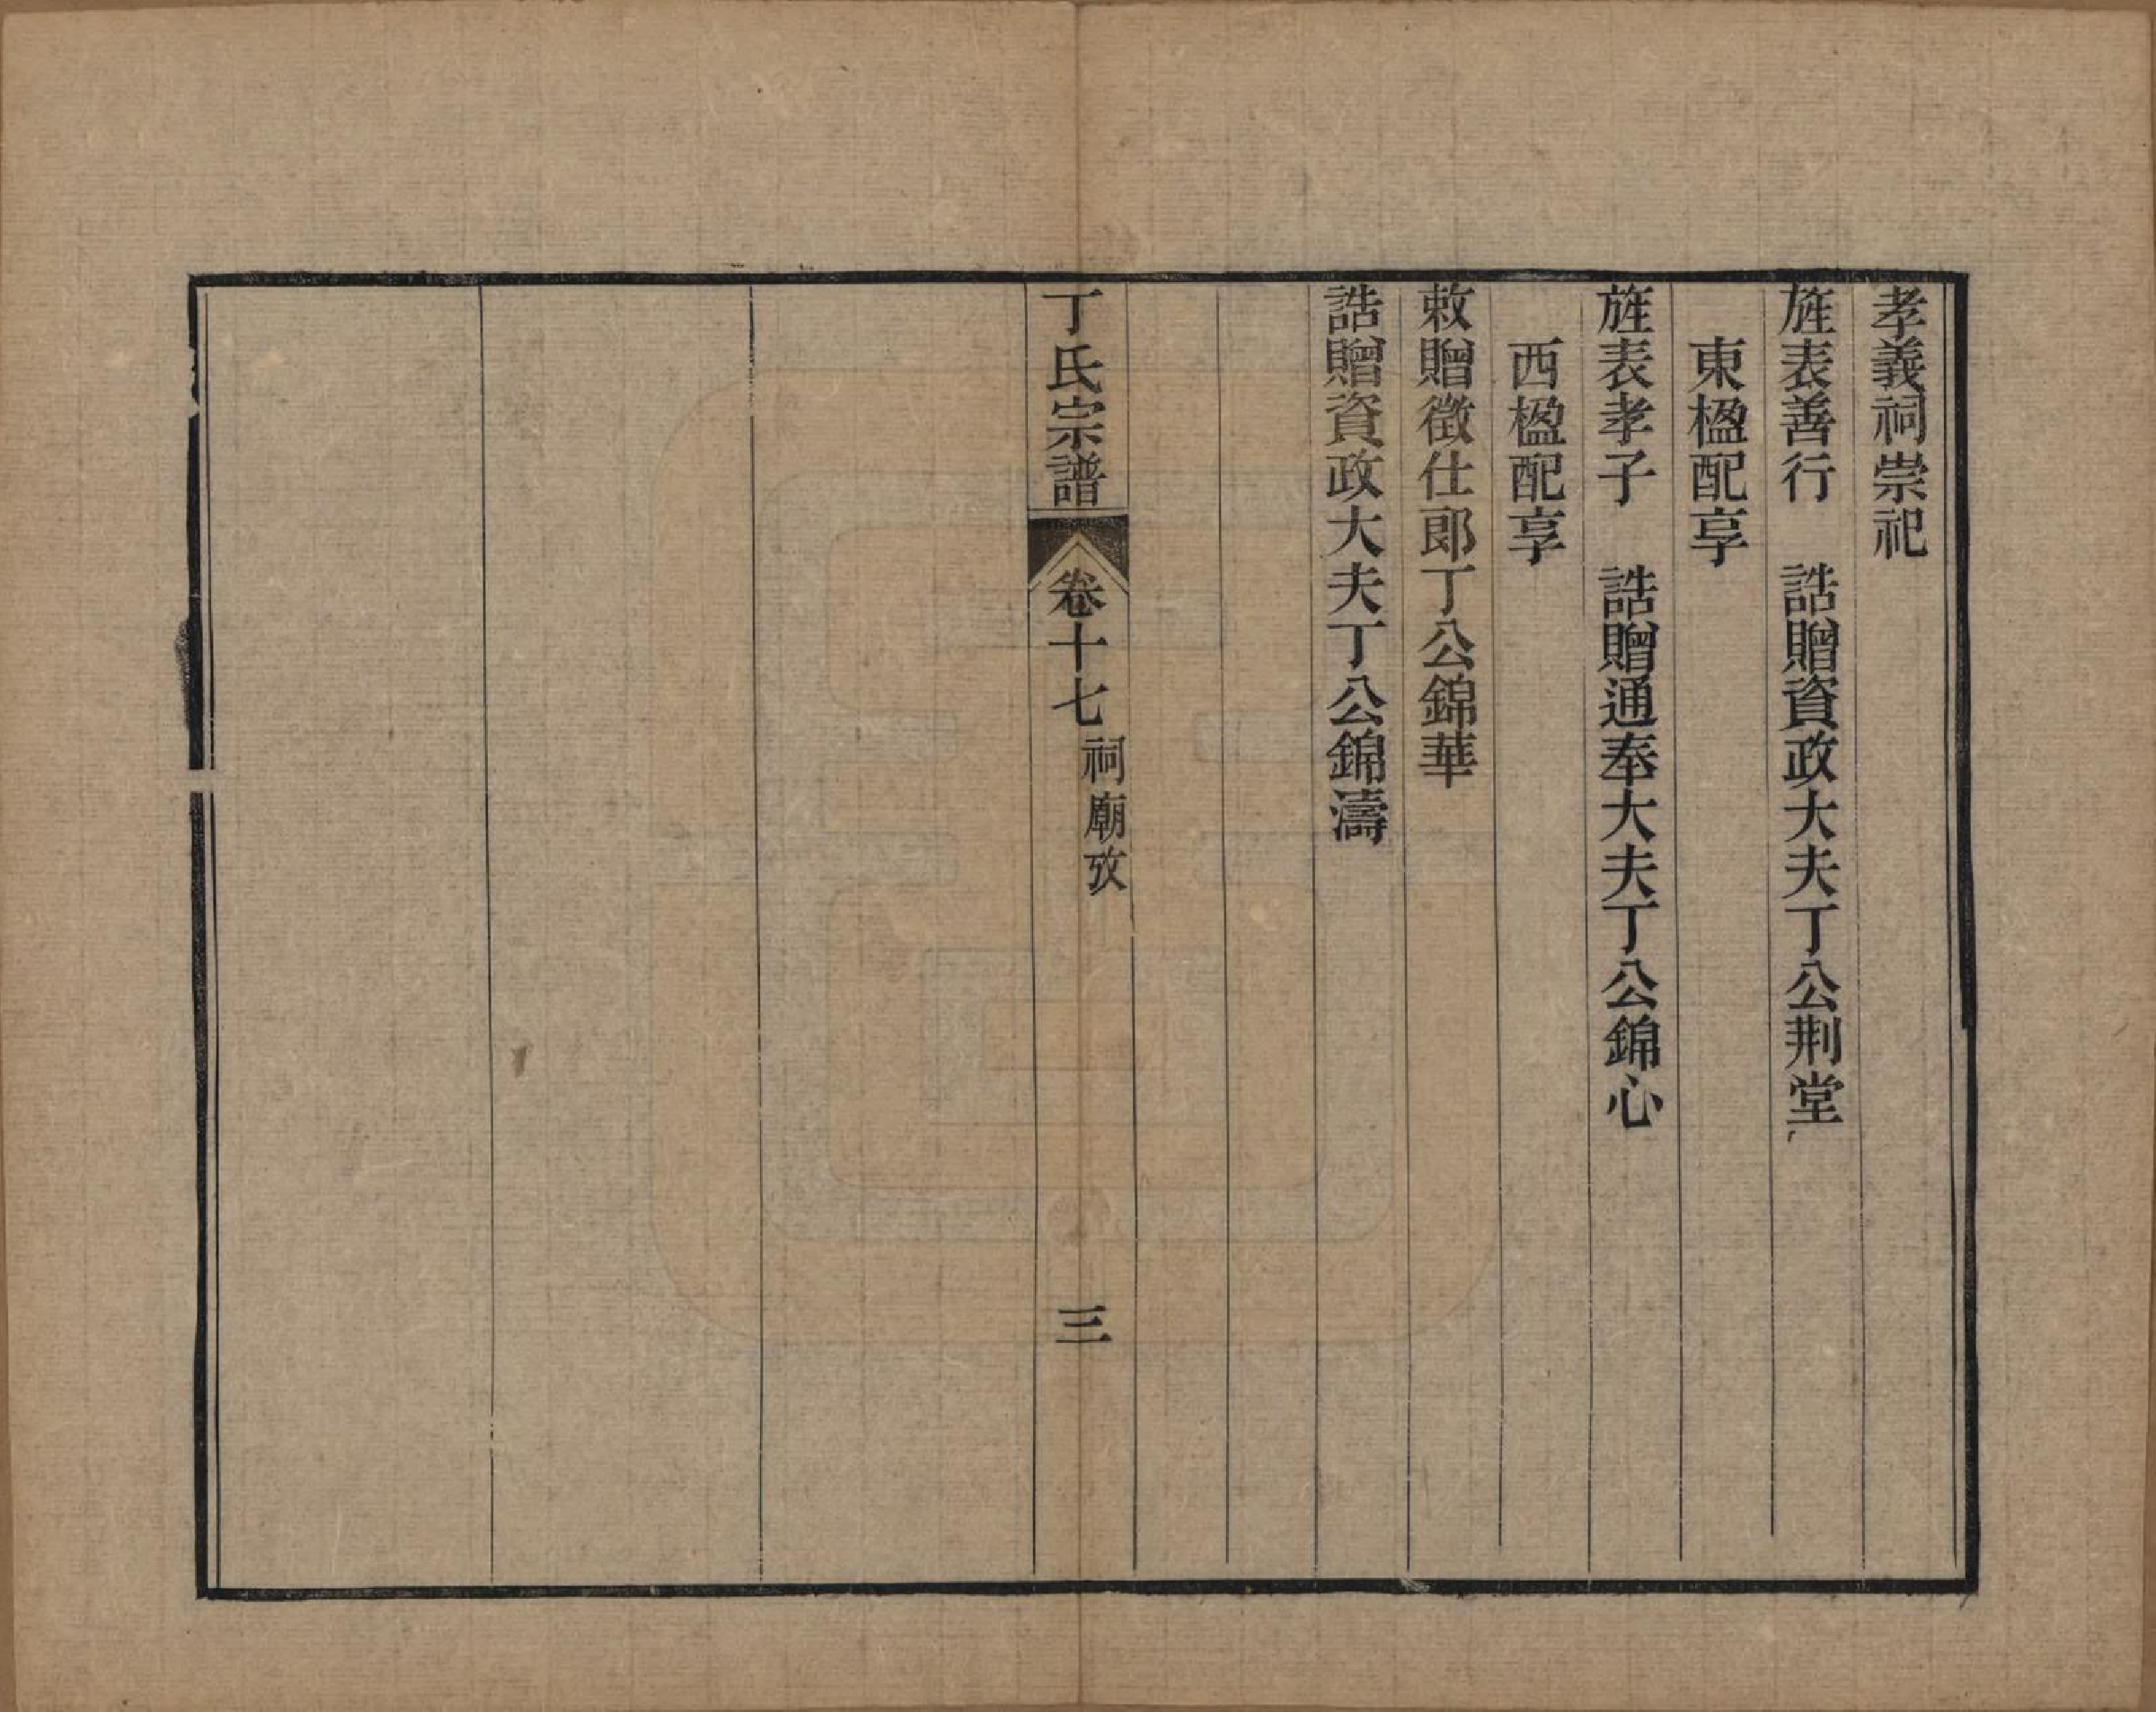 孝義祠崇祀
旌表善行　誥贈資政大夫丁公荆堂
東楹配享
旌表孝子　誥贈通奉大夫丁公錦心
西楹配享
敕贈徵仕郎丁公錦華
誥贈資政大夫丁公錦濤
丁氏宗譜　卷十七　祠廟攷　三